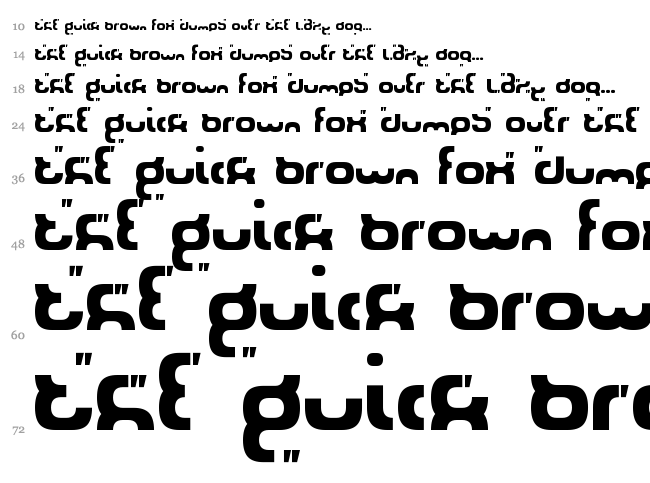 10 the quick brown fox jumps over the lazy dog...
14 the quick brown fox jumps over the lazy dog...
18 the quick brown fox jumps over the lazy dog...
24 the quick brown fox jumps over the
36 the quick brown fox jump
48 the quick brown fox
60 the quick brow
72 the quick bro